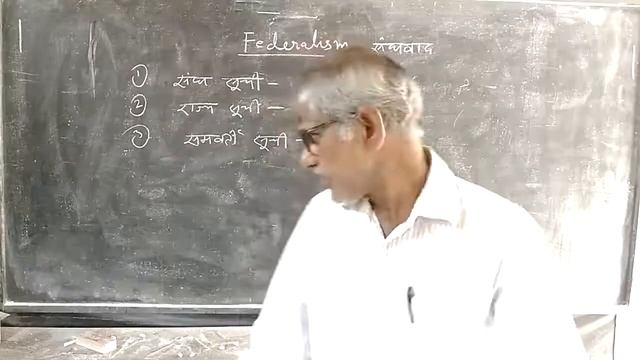 Federalism संघवाद
① संघ सूची –
② राज्य सूची –
③ समवर्ती सूची –